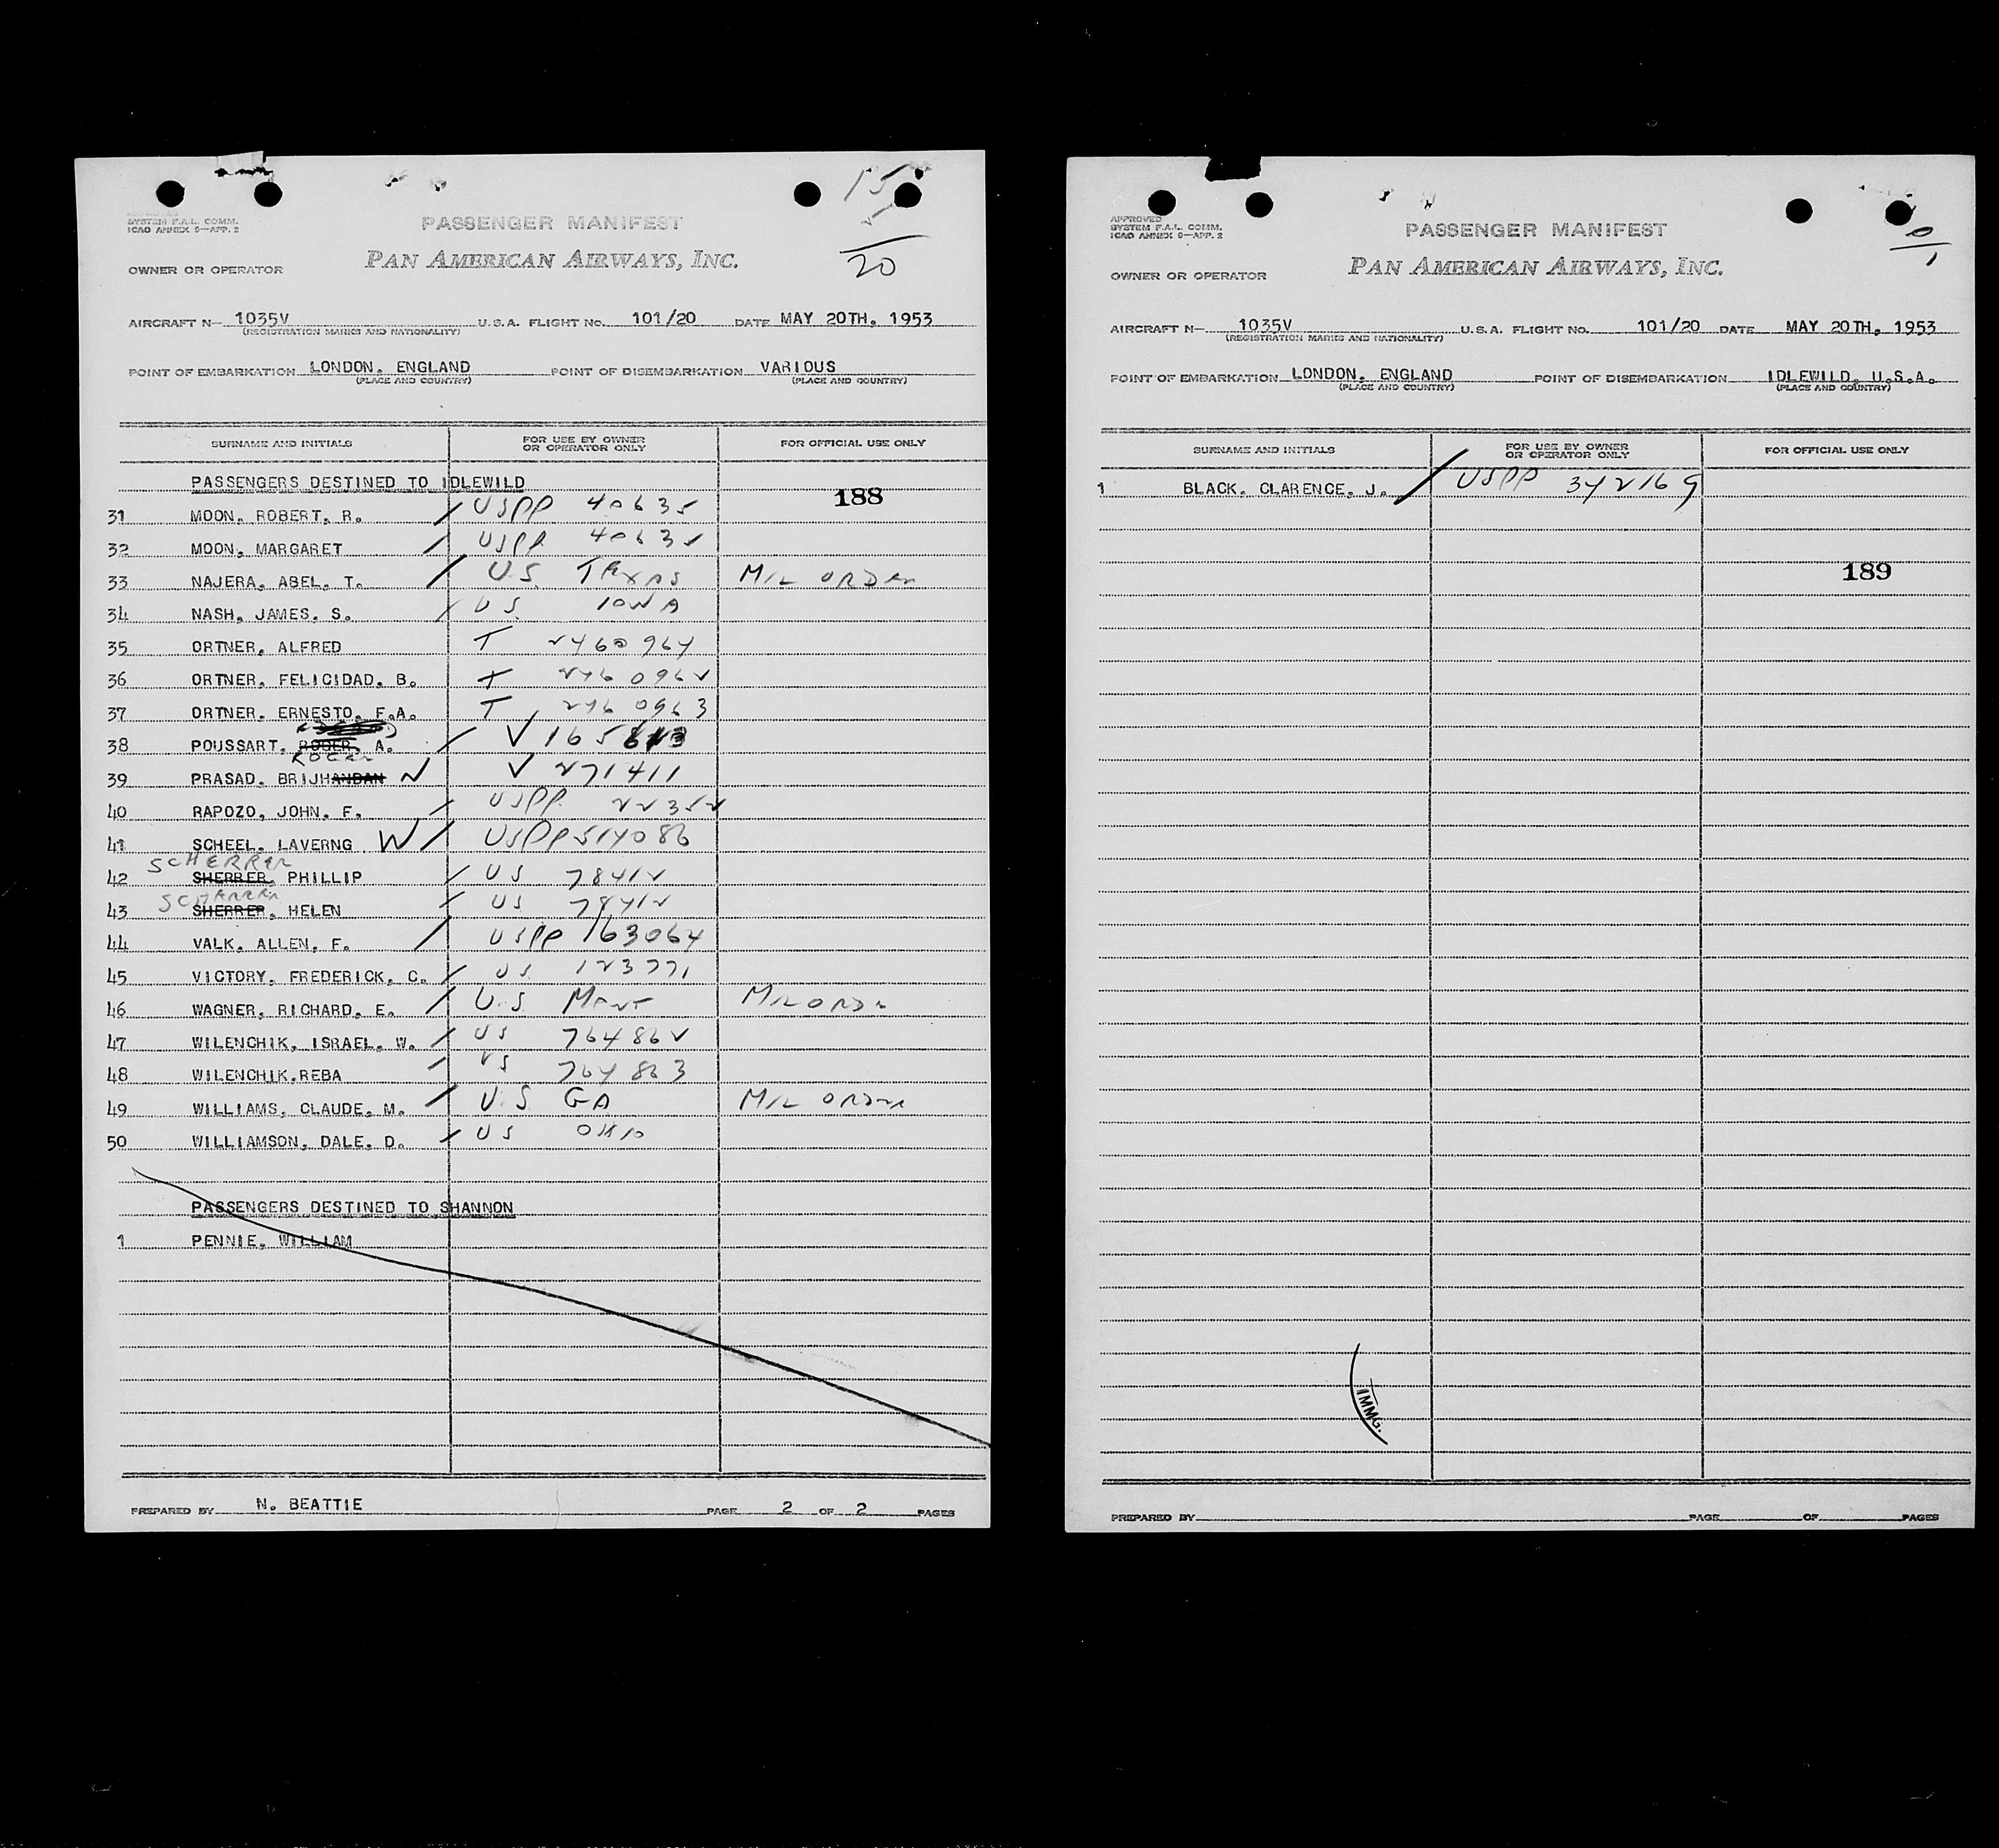 15
5
20
APPROVED
SYSTEM F.A.L. COMM.
ICAO ANNEX 9—APP. 2
PASSENGER MANIFEST
PAN AMERICAN AIRWAYS, INC.
OWNER OR OPERATOR
AIRCRAFT N— 1035V U.S.A. FLIGHT NO. 101/20 DATE MAY 20TH, 1953
(REGISTRATION MARKS AND NATIONALITY)
POINT OF EMBARKATION LONDON, ENGLAND POINT OF DISEMBARKATION VARIOUS
(PLACE AND COUNTRY) (PLACE AND COUNTRY)
SURNAME AND INITIALS FOR USE BY OWNER OR OPERATOR ONLY FOR OFFICIAL USE ONLY
PASSENGERS DESTINED TO IDLEWILD
188
31 MOON, ROBERT, R. / USPP 40635
32 MOON, MARGARET / USPP 40635
33 NAJERA, ABEL, T. / U.S. TEXAS MIL ORDER
34 NASH, JAMES, S. / US IOWA
35 ORTNER, ALFRED T 2460964
36 ORTNER, FELICIDAD, B. T 2460962
37 ORTNER, ERNESTO, F.A. T 2460963
38 POUSSART, ROGER, A. / V 165613
ROGER
39 PRASAD, BRIJHANDAN N V 271411
40 RAPOZO, JOHN, F. / USPP 22352
41 SCHEEL, LAVERNG W / USPP 514086
SCHERRER
42 SHERRER, PHILLIP / US 78412
SCHERRER
43 SHERRER, HELEN / US 78412
44 VALK, ALLEN, F. / USPP 163064
45 VICTORY, FREDERICK, C. / US 123771
46 WAGNER, RICHARD, E. / U.S MONT MIL ORDER
47 WILENCHIK, ISRAEL, W. / US 764862
48 WILENCHIK.REBA / US 764863
49 WILLIAMS, CLAUDE, M. / U.S GA MIL ORDER
50 WILLIAMSON, DALE, D. / US OHIO
PASSENGERS DESTINED TO SHANNON
1 PENNIE, WILLIAM
PREPARED BY N. BEATTIE PAGE 2 OF 2 PAGES
0
1
APPROVED
SYSTEM F.A.L. COMM.
ICAO ANNEX 9—APP. 2
PASSENGER MANIFEST
PAN AMERICAN AIRWAYS, INC.
OWNER OR OPERATOR
AIRCRAFT N— 1035V U.S.A. FLIGHT NO. 101/20 DATE MAY 20TH, 1953
(REGISTRATION MARKS AND NATIONALITY)
POINT OF EMBARKATION LONDON, ENGLAND POINT OF DISEMBARKATION IDLEWILD, U.S.A.
(PLACE AND COUNTRY) (PLACE AND COUNTRY)
SURNAME AND INITIALS FOR USE BY OWNER OR OPERATOR ONLY FOR OFFICIAL USE ONLY
1 BLACK, CLARENCE, J. / USPP 342169
189
IMMG.
PREPARED BY PAGE OF PAGES